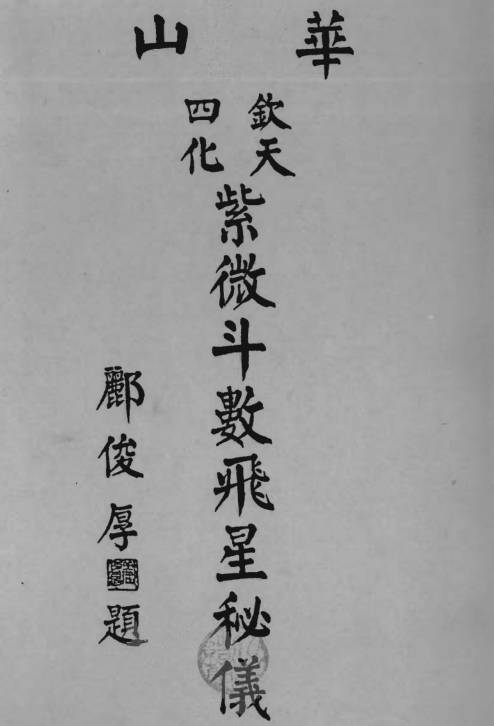 華山
欽天
四化
紫微斗數飛星秘儀
酈俊厚題